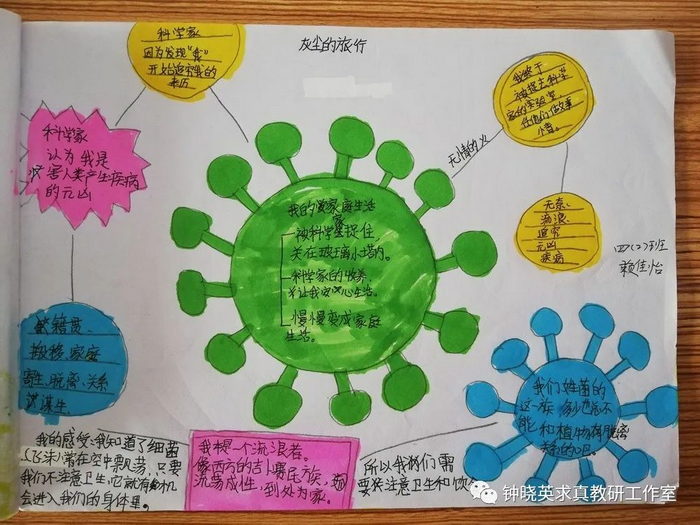 灰尘的旅行
科学家
因为发现"毒"
开始追究我的
来历
科学家
认为我是
害人类产生疾病
的元凶
籍贯、
搬移、家庭
寄生、脱离、关系
谋生。
我的家庭生活
被科学家捉住
关在玻璃小塔内。
科学家的收养
让我安心生活。
慢慢变成家庭
生活。
我终于
被捉去科学
家的实验室
任他们做故事
小看。
无情的火
无奈
流浪
追究
元凶
疾病
四(2)班
赖佳怡
我们姓菌的
这一族
能和植物脱离
关系的口巴。
我的感受:我知道了细菌
(飞沫)常在空中飘荡,只要
我们不注意卫生,它就有机
会进入我们的身体里。
我根一个流浪者。
像西方的吉卜赛民族,
流荡成性,到处为家。
所以我们需
要注意卫生和饮
钟晓英求真教研工作室